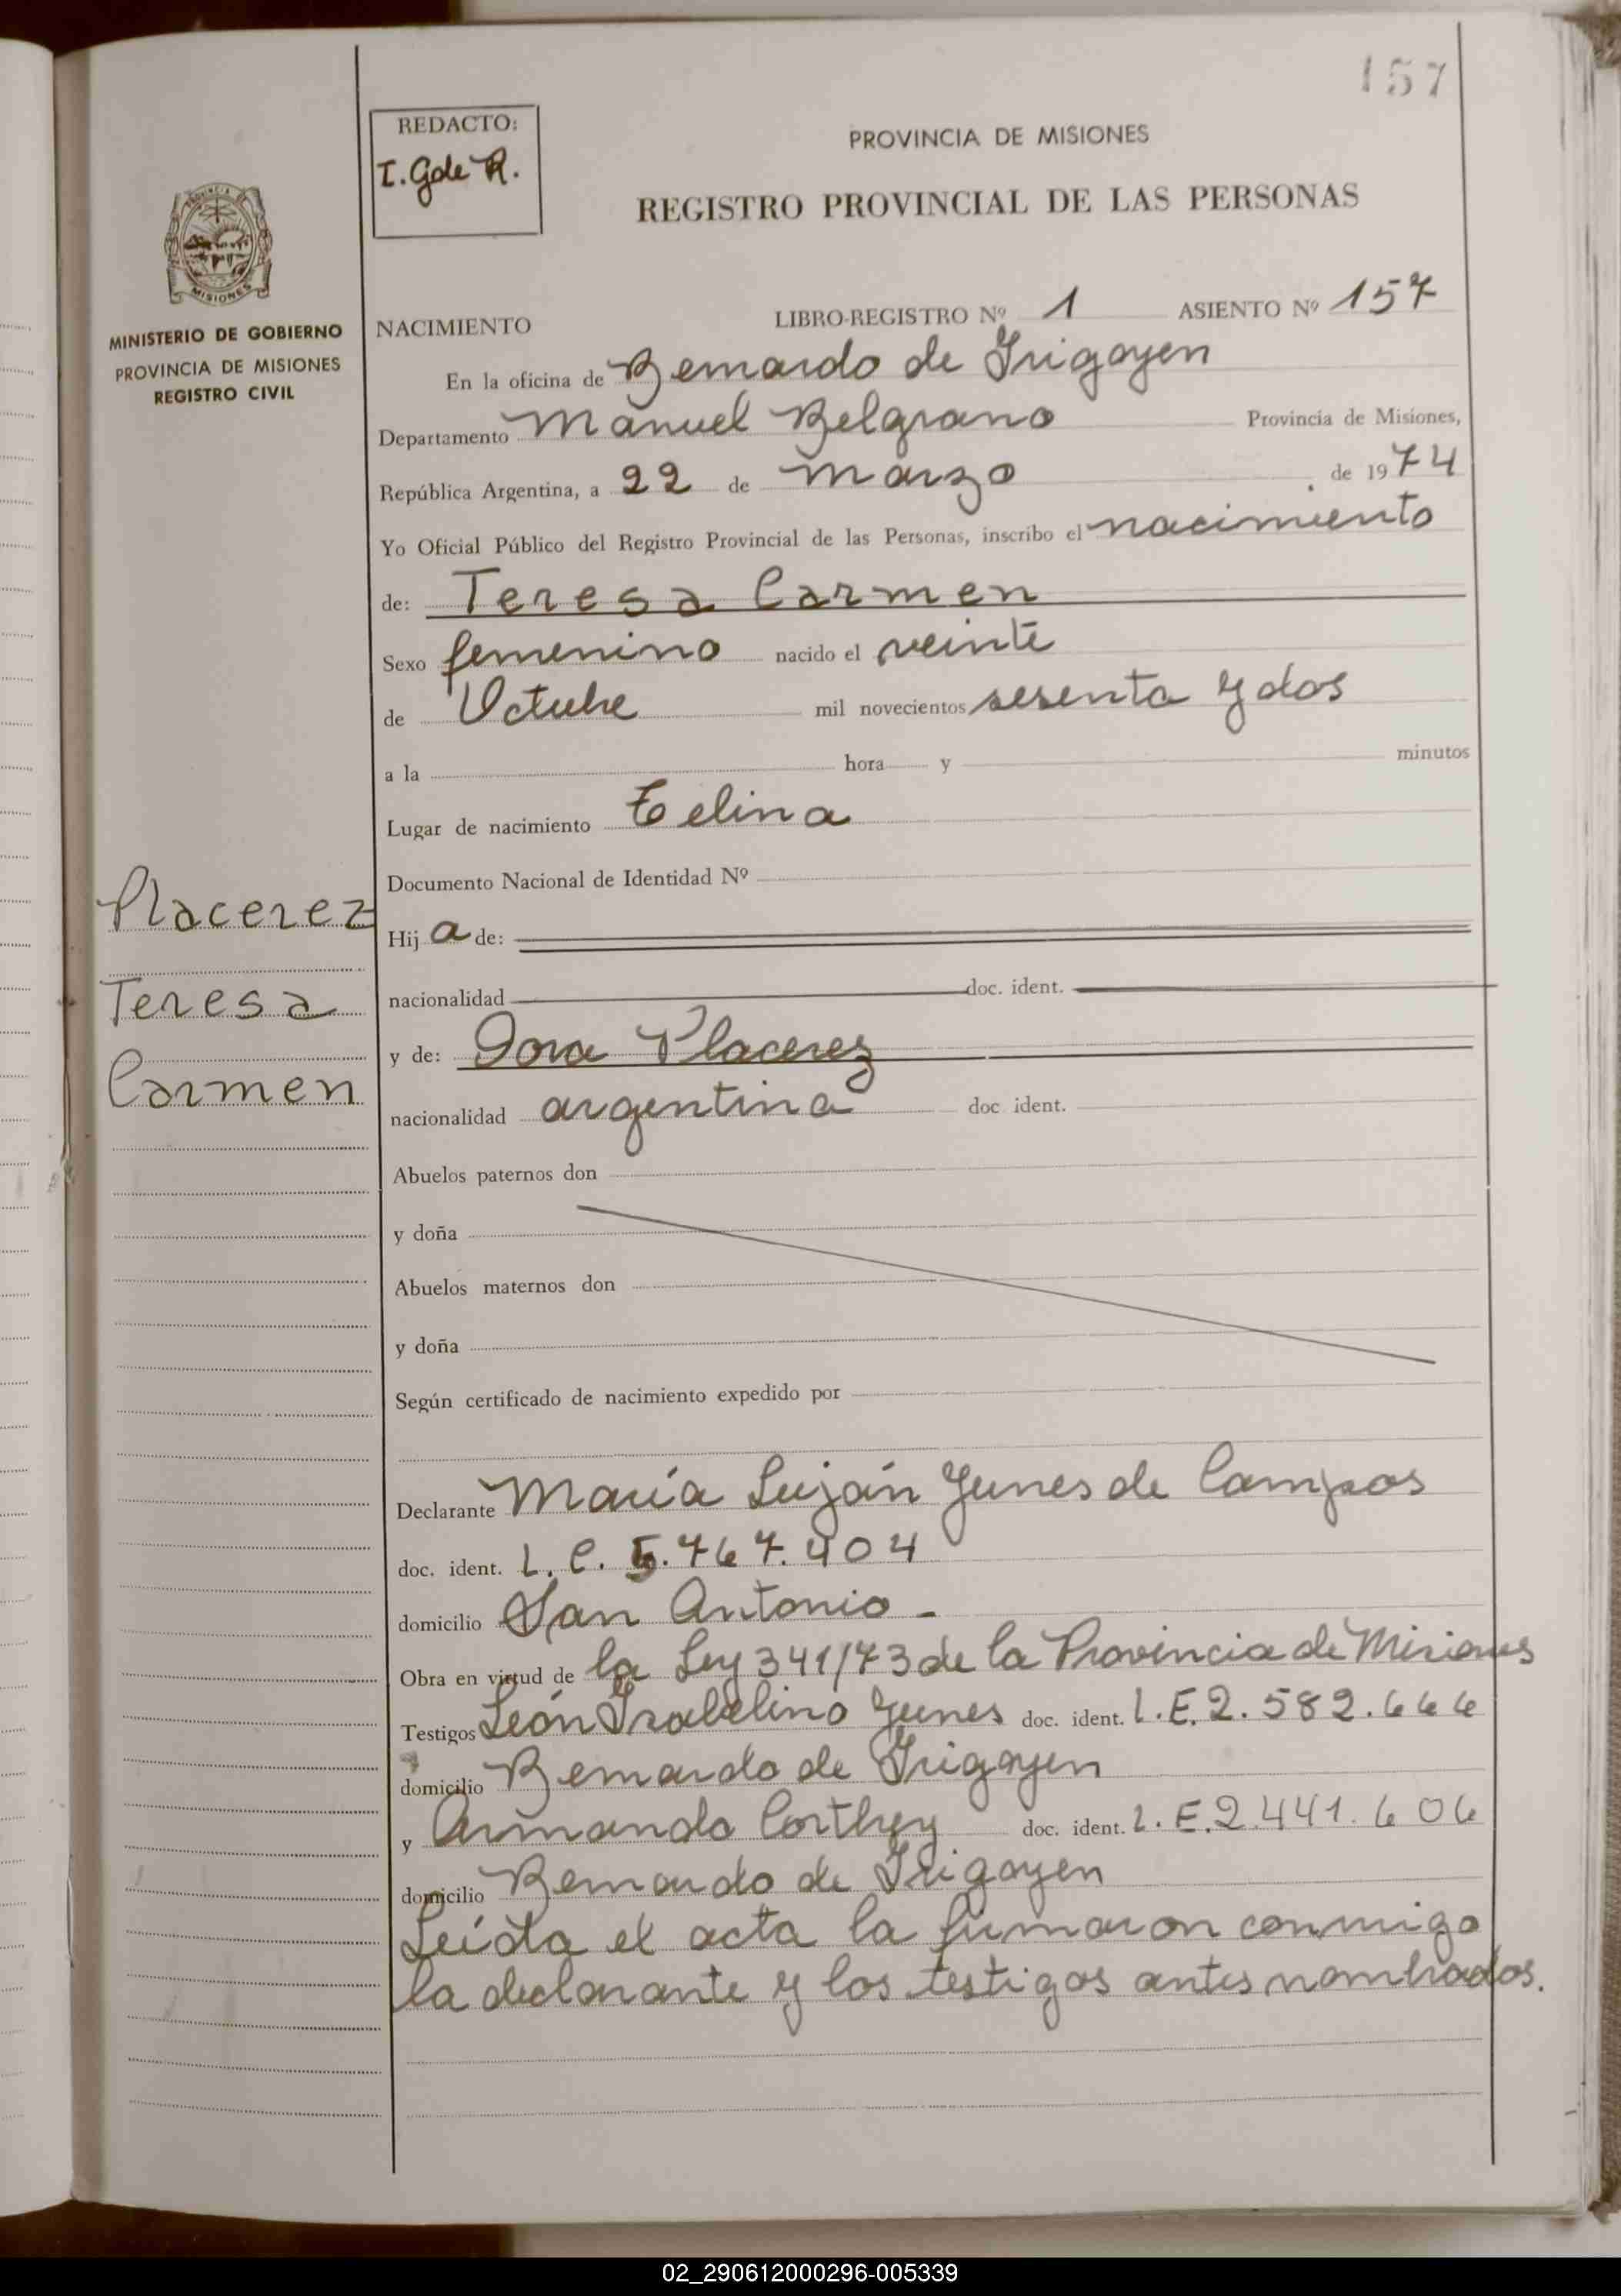 157
REDACTO:
I. G de R.
PROVINCIA DE MISIONES
REGISTRO PROVINCIAL DE LAS PERSONAS
MISIONES
MINISTERIO DE GOBIERNO
PROVINCIA DE MISIONES
REGISTRO CIVIL
NACIMIENTO LIBRO-REGISTRO Nº 1 ASIENTO Nº 157
En la oficina de Bernardo de Irigoyen
Departamento Manuel Belgrano Provincia de Misiones,
República Argentina, a 22 de marzo de 1974
Yo Oficial Público del Registro Provincial de las Personas, inscribo el nacimiento
de: Teresa Carmen
Sexo femenino nacido el veinte
de Octubre mil novecientos sesenta y dos
a la hora y minutos
Lugar de nacimiento
Documento Nacional de Identidad Nº
Placerez
Teresa
Carmen
Hij a de:
nacionalidad doc. ident.
y de: Dora Placerez
nacionalidad argentina doc ident.
Abuelos paternos don
y doña
Abuelos maternos don
y doña
Según certificado de nacimiento expedido por
Declarante María Luján Yunes de Campos
doc. ident. L. C. 5.767.404
domicilio San Antonio -
Obra en virtud de la Ley 341/73 de la Provincia de Misiones
Testigos León Isabelino Yunes doc. ident. L.E. 2.582.666
domicilio Bernardo de Irigoyen
y Armando Corthey doc. ident. L.E. 2.441.606
domicilio Bernardo de Irigoyen
Leída el acta la firmaron conmigo
la declarante y los testigos antes nombrados.
02_290612000296-005339